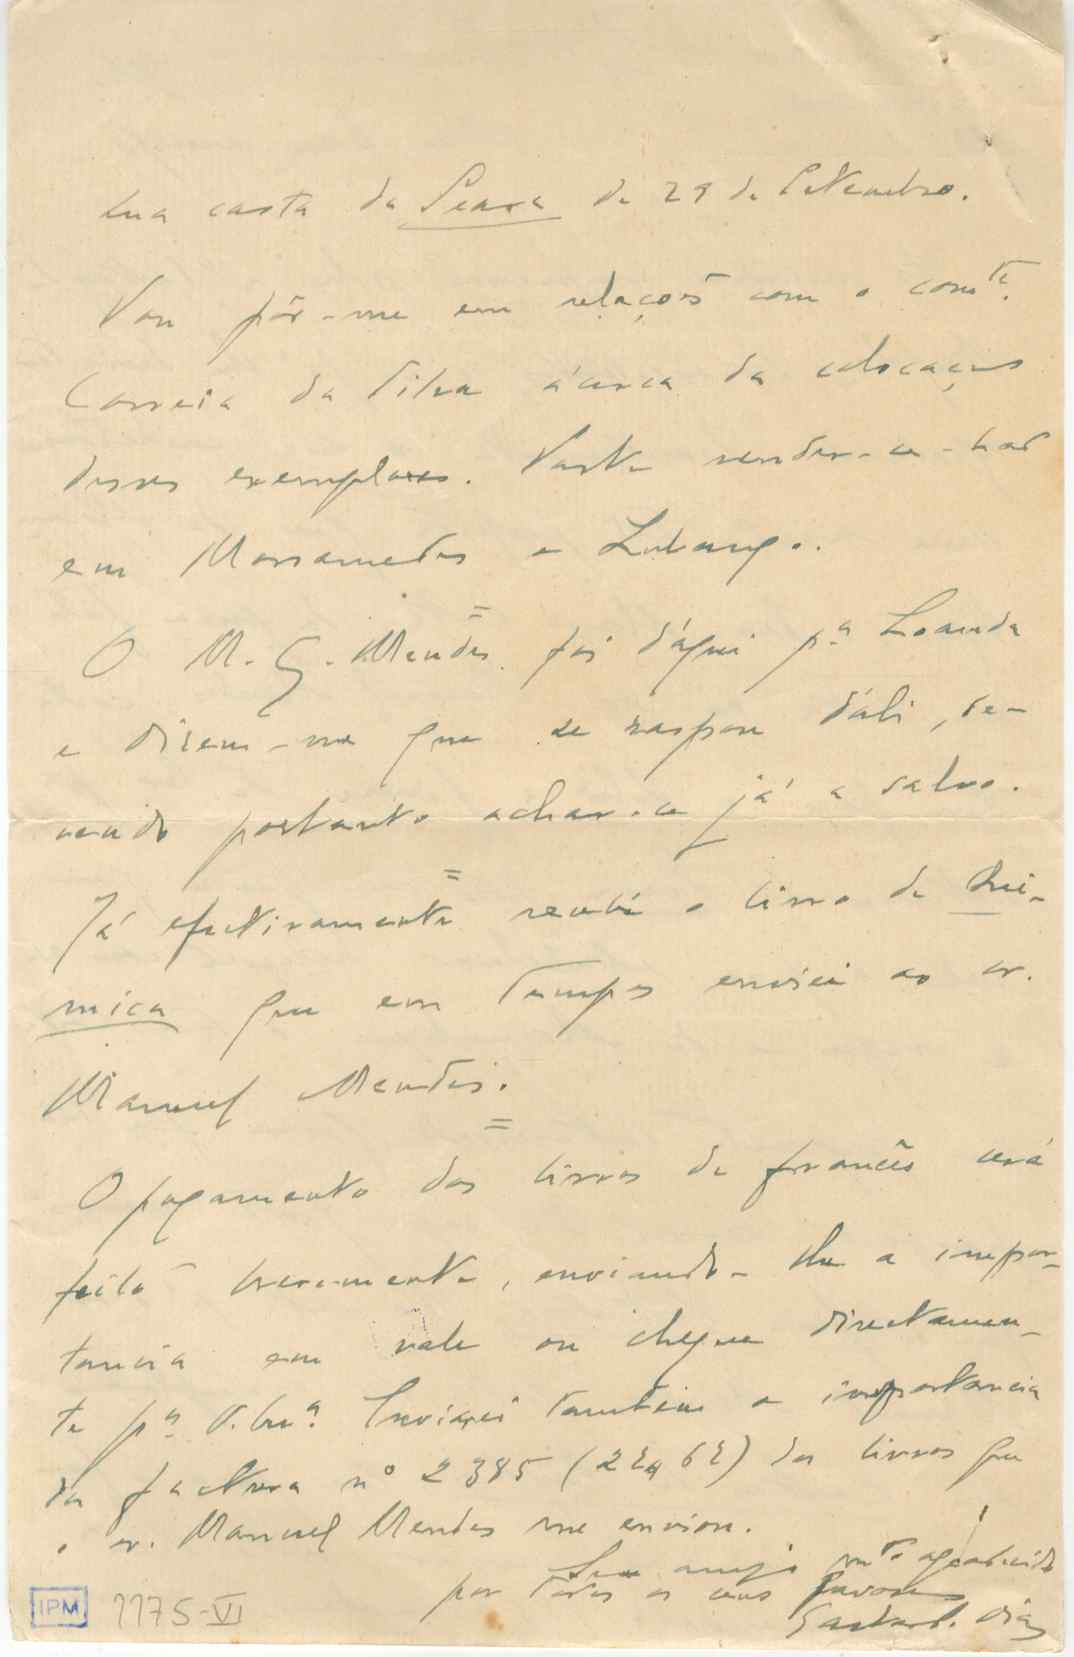 sua carta da Seara de 29 de Setembro.
Vou pôr-me em relações com o com.te
Correia da Silva ácerca da colocação
desses exemplares. vender-se-hão
em Mossamedes e Lubango.
=
O M. G. Mendes foi d'aqui p.a Loanda
e dizem-me que se raspou dáli, de-
vendo portanto achar-se já a salvo.
=
Já efectivamente recebi o livro de Qui-
mica que em tempos enviei ao sr.
Manuel Mendes.
=
O pagamento dos livros de francês será
feito brevemente, enviando-lhe a impor-
tancia em vale ou cheque directamen-
te p.a V. Enviarei tambem a importancia
da factura nº 2385 dos livros que
o sr. Manuel Mendes me enviou.
Seu amigo m.to agradecido
por todos os seus favores
Gastão S. Dias
IPM 1175-VI